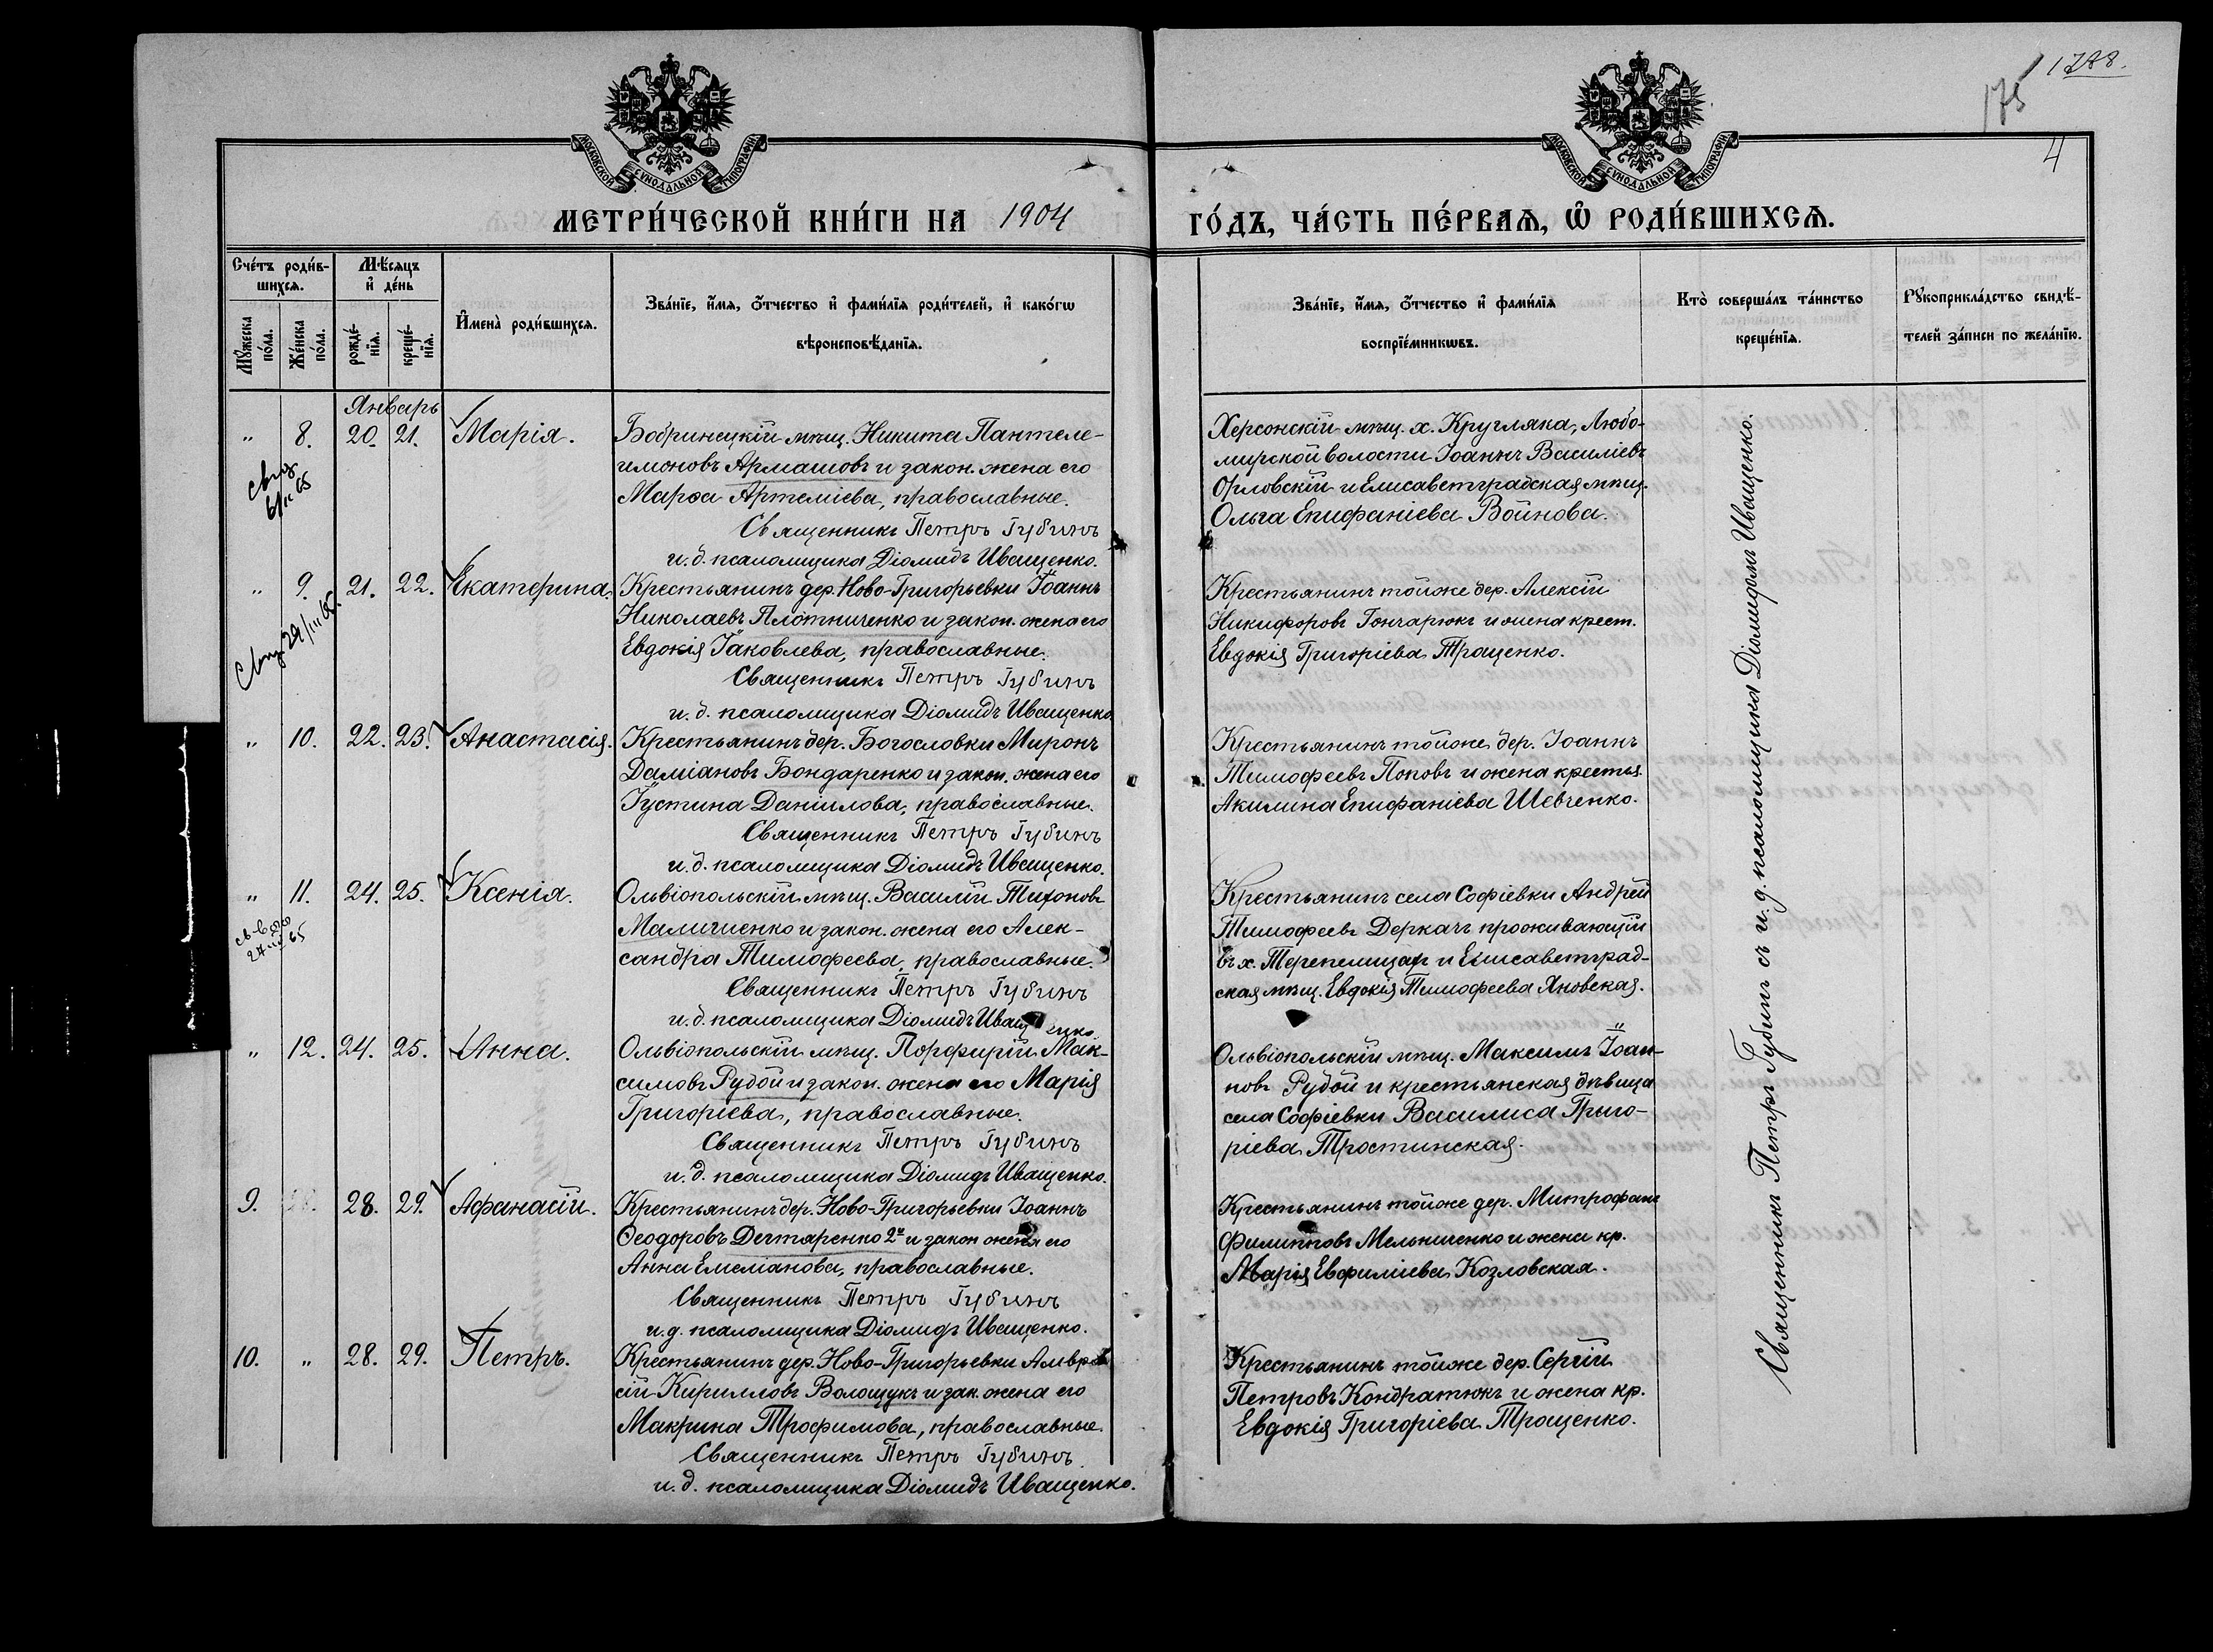 1788.
175
4
МОСКОВСКОЙ СѴНОДАЛЬНОЙ ТИПОГРАФІИ
МОСКОВСКОЙ СѴНОДАЛЬНОЙ ТИПОГРАФІИ
МЕТРИ́ЧЕСКОЙ КНИ́ГИ НА 1904
ГО́ДЪ, ЧА́СТЬ ПЕ́РВАѦ, Ѡ҆ РОДИ́ВШИХСѦ.
Сче́тъ роди́в-
шихсѧ.
Мꙋ́жеска по́ла.
Же́нска по́ла.
Мѣ́сѧцъ и҆ де́нь
рожде́-нїѧ.
креще́-нїѧ.
И҆мена̀ роди́вшихсѧ.
Зва́нїе, и҆́мѧ, ѻ҆́тчество и҆ фами́лїѧ роди́телей, и҆ како́гѡ
вѣроисповѣ́данїѧ.
Зва́нїе, и҆́мѧ, ѻ҆́тчество и҆ фами́лїѧ
воспрїе́мникѡвъ.
Кто̀ соверша́лъ та́инство
креще́нїѧ.
Рꙋкоприкла́дство свидѣ́-
телей за́писи по жела́нїю.
Январь
" 8. 20. 21. Марія.
Бобринецкій мѣщ. Никита Пантеле-
имоновъ Армашовъ и закон. жена его
Марѳа Артеміева, православные.
Священникъ Петръ Губинъ
и. д. псаломщика Діомидъ Иващенко.
Херсонскій мѣщ. х. Кругляка, Любо-
мирской волости Іоаннъ Василіевъ
Орловскій и Елисаветградская мѣщ.
Ольга Епифаніева Войнова.
" 9. 21. 22. Екатерина.
Крестьянинъ дер. Ново-Григорьевки Іоаннъ
Николаевъ Плотниченко и закон. жена его
Евдокія Іаковлева, православные.
Священникъ Петръ Губинъ
и. д. псаломщика Діомидъ Иващенко
Крестьянинъ тойже дер. Алексій
Никифоровъ Гончарюкъ и жена крест.
Евдокія Григоріева Траценко.
29/III 65.
" 10. 22. 23. Анастасія.
Крестьянинъ дер. Богословки Миронъ
Даміановъ Бондаренко и закон. жена его
Іустина Даніилова, православные.
Священникъ Петръ Губинъ
и. д. псаломщика Діомидъ Иващенко.
Крестьянинъ тойже дер. Іоаннъ
Тимофеевъ Поповъ и жена крестья.
Акилина Епифаніева Шевченко.
" 11. 24. 25. Ксенія.
Ольвіопольскій мѣщ. Василій Тихоновъ
Маличиенко и закон. жена его Алек-
сандра Тимофеева, православные.
Священникъ Петръ Губинъ
и. д. псаломщика Діомидъ Иващенко.
Крестьянинъ села Софіевки Андрей
Тимофеевъ Деркачъ проживающій
въ х. Терепелицах и Елисаветград-
ская мѣщ. Евдокія Тимофеева Яновская.
" 12. 24. 25. Анна.
Ольвіопольскій мѣщ. Порфирій Мак-
симовъ Рудой и закон. жена его Марія
Григоріева, православные.
Священникъ Петръ Губинъ
и. д. псаломщика Діомидъ Иващенко.
Ольвіопольскій мѣщ. Максимъ Іоан-
новъ Рудой и крестьянская дѣвица
села Софіевки Василиса Григо-
ріева Тростинская.
9. 28. 29. Афанасій.
Крестьянинъ дер. Ново-Григорьевки Іоаннъ
Ѳеодоровъ Дегтяренко 2й и закон жена его
Анна Емеліанова, православные.
Священникъ Петръ Губинъ
и. д. псаломщика Діомидъ Иващенко.
Крестьянинъ тойже дер. Митрофанъ
Филипповъ Мельниченко и жена кр.
Марія Евфиміева Козловская.
10. " 28. 29. Петръ.
Крестьянинъ дер. Ново-Григорьевки Амвро
сій Кирилловъ Волощукъ и зак. жена его
Макрина Трофимова, православные.
Священникъ Петръ Губинъ.
и. д. псаломщика Діомидъ Иващенко.
Крестьянинъ тойже дер. Сергій
Петровъ Кондратюкъ и жена кр.
Евдокія Григоріева Троценко.
Священникъ Петръ Губинъ съ и. д. псаломщика Діомидомъ Иващенко.